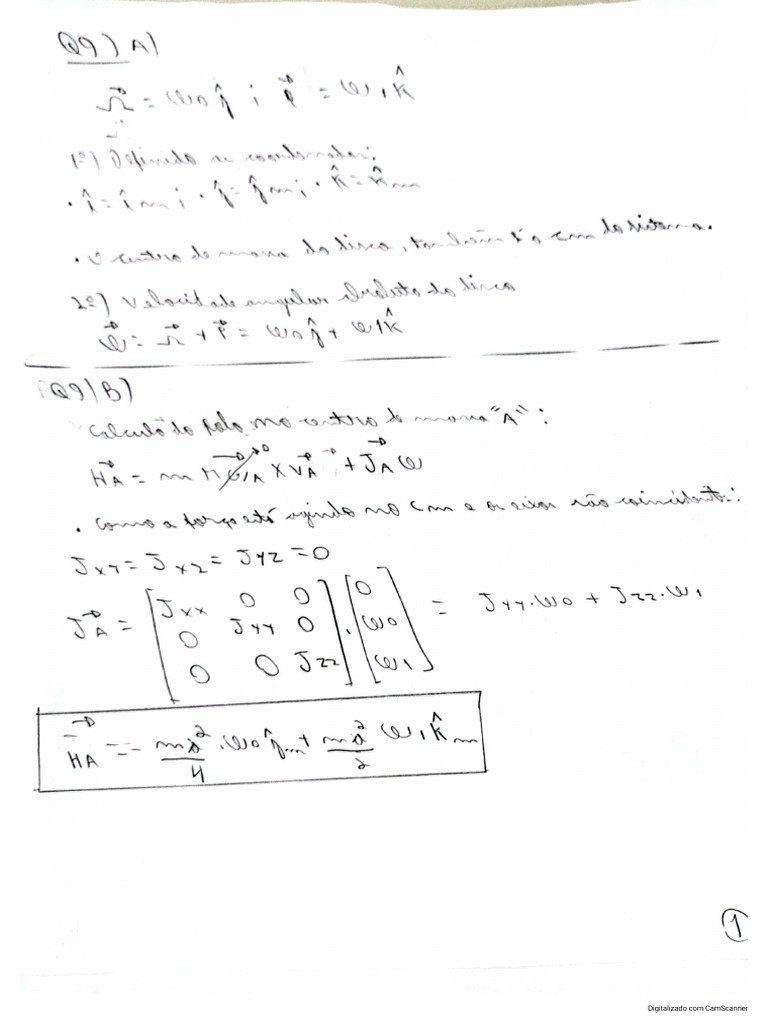 Q9) A)
Ω⃗ = ω0 ĵ ; P⃗ = ω1 k̂
1º) Definido as coordenadas:
• î = îm ; • ĵ = ĵm ; • k̂ = k̂m
• O centro de massa do disco, também é o cm do sistema.
2º) Velocidade angular absoluta do disco
ω⃗ = Ω⃗ + P⃗ = ω0 ĵ + ω1 k̂
Q9) B)
Calculo do polo no centro de massa "A":
H⃗A = m r⃗G/A→0 × V⃗A + J⃗A ω
• Como a força está agindo no cm e os eixos são coincidentes:
Jxy = Jxz = Jyz = 0
J⃗A = [Jxx 0 0; 0 Jyy 0; 0 0 Jzz] . [0; ω0; ω1] = Jyy.ω0 + Jzz.ω1
H⃗A = - ma²/4 . ω0 ĵm + ma²/2 ω1 k̂m
1
Digitalizado com CamScanner